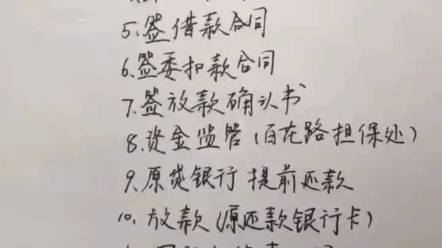 5.签借款合同
6.签委扣款合同
7.签放款确认书
8.资金监管(百花路担保处)
9.原贷银行 提前还款
10.放款(原还款银行卡)